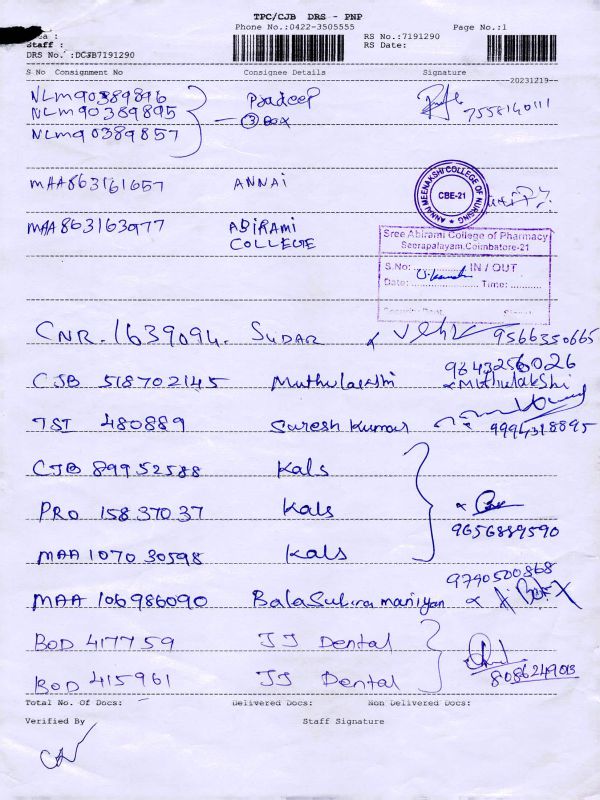 TPC/CJB DRS - PNP
Phone No.:0422-3505555 Page No.:1
RS No.:7191290
Staff : RS Date:
DRS No.:DCJB7191290
S No Consignment No Consignee Details Signature
20231219
NLM90389896 Pradeep
NLM90389895 ③ Box 7558140111
NLM90389857
MAA863161657 ANNAI
ANNAI MEENAKSHI COLLEGE OF NURSING
CBE-21
MAA863163977 ABIRAMI COLLEGE
Sree Abirami College of Pharmacy
Seerapalayam,Coimbatore-21
S.No: IN / OUT
Date: Time:
CNR.1639094. SUDAR 9566350665
9643256026
CJB 518702145 Muthulakshi Muthulakshi
TSI 480889 Suresh Kumar 9994318895
CJB 89952588 Kals
PRO 15837037 Kals
9656889590
MAA 107030598 Kals
9790500868
MAA 106986090 Balasubramaniyan
BOD 417759 JJ Dental
BOD 415961 JJ Dental 8086249013
Total No. Of Docs: Delivered Docs: Non Delivered Docs:
Verified By Staff Signature